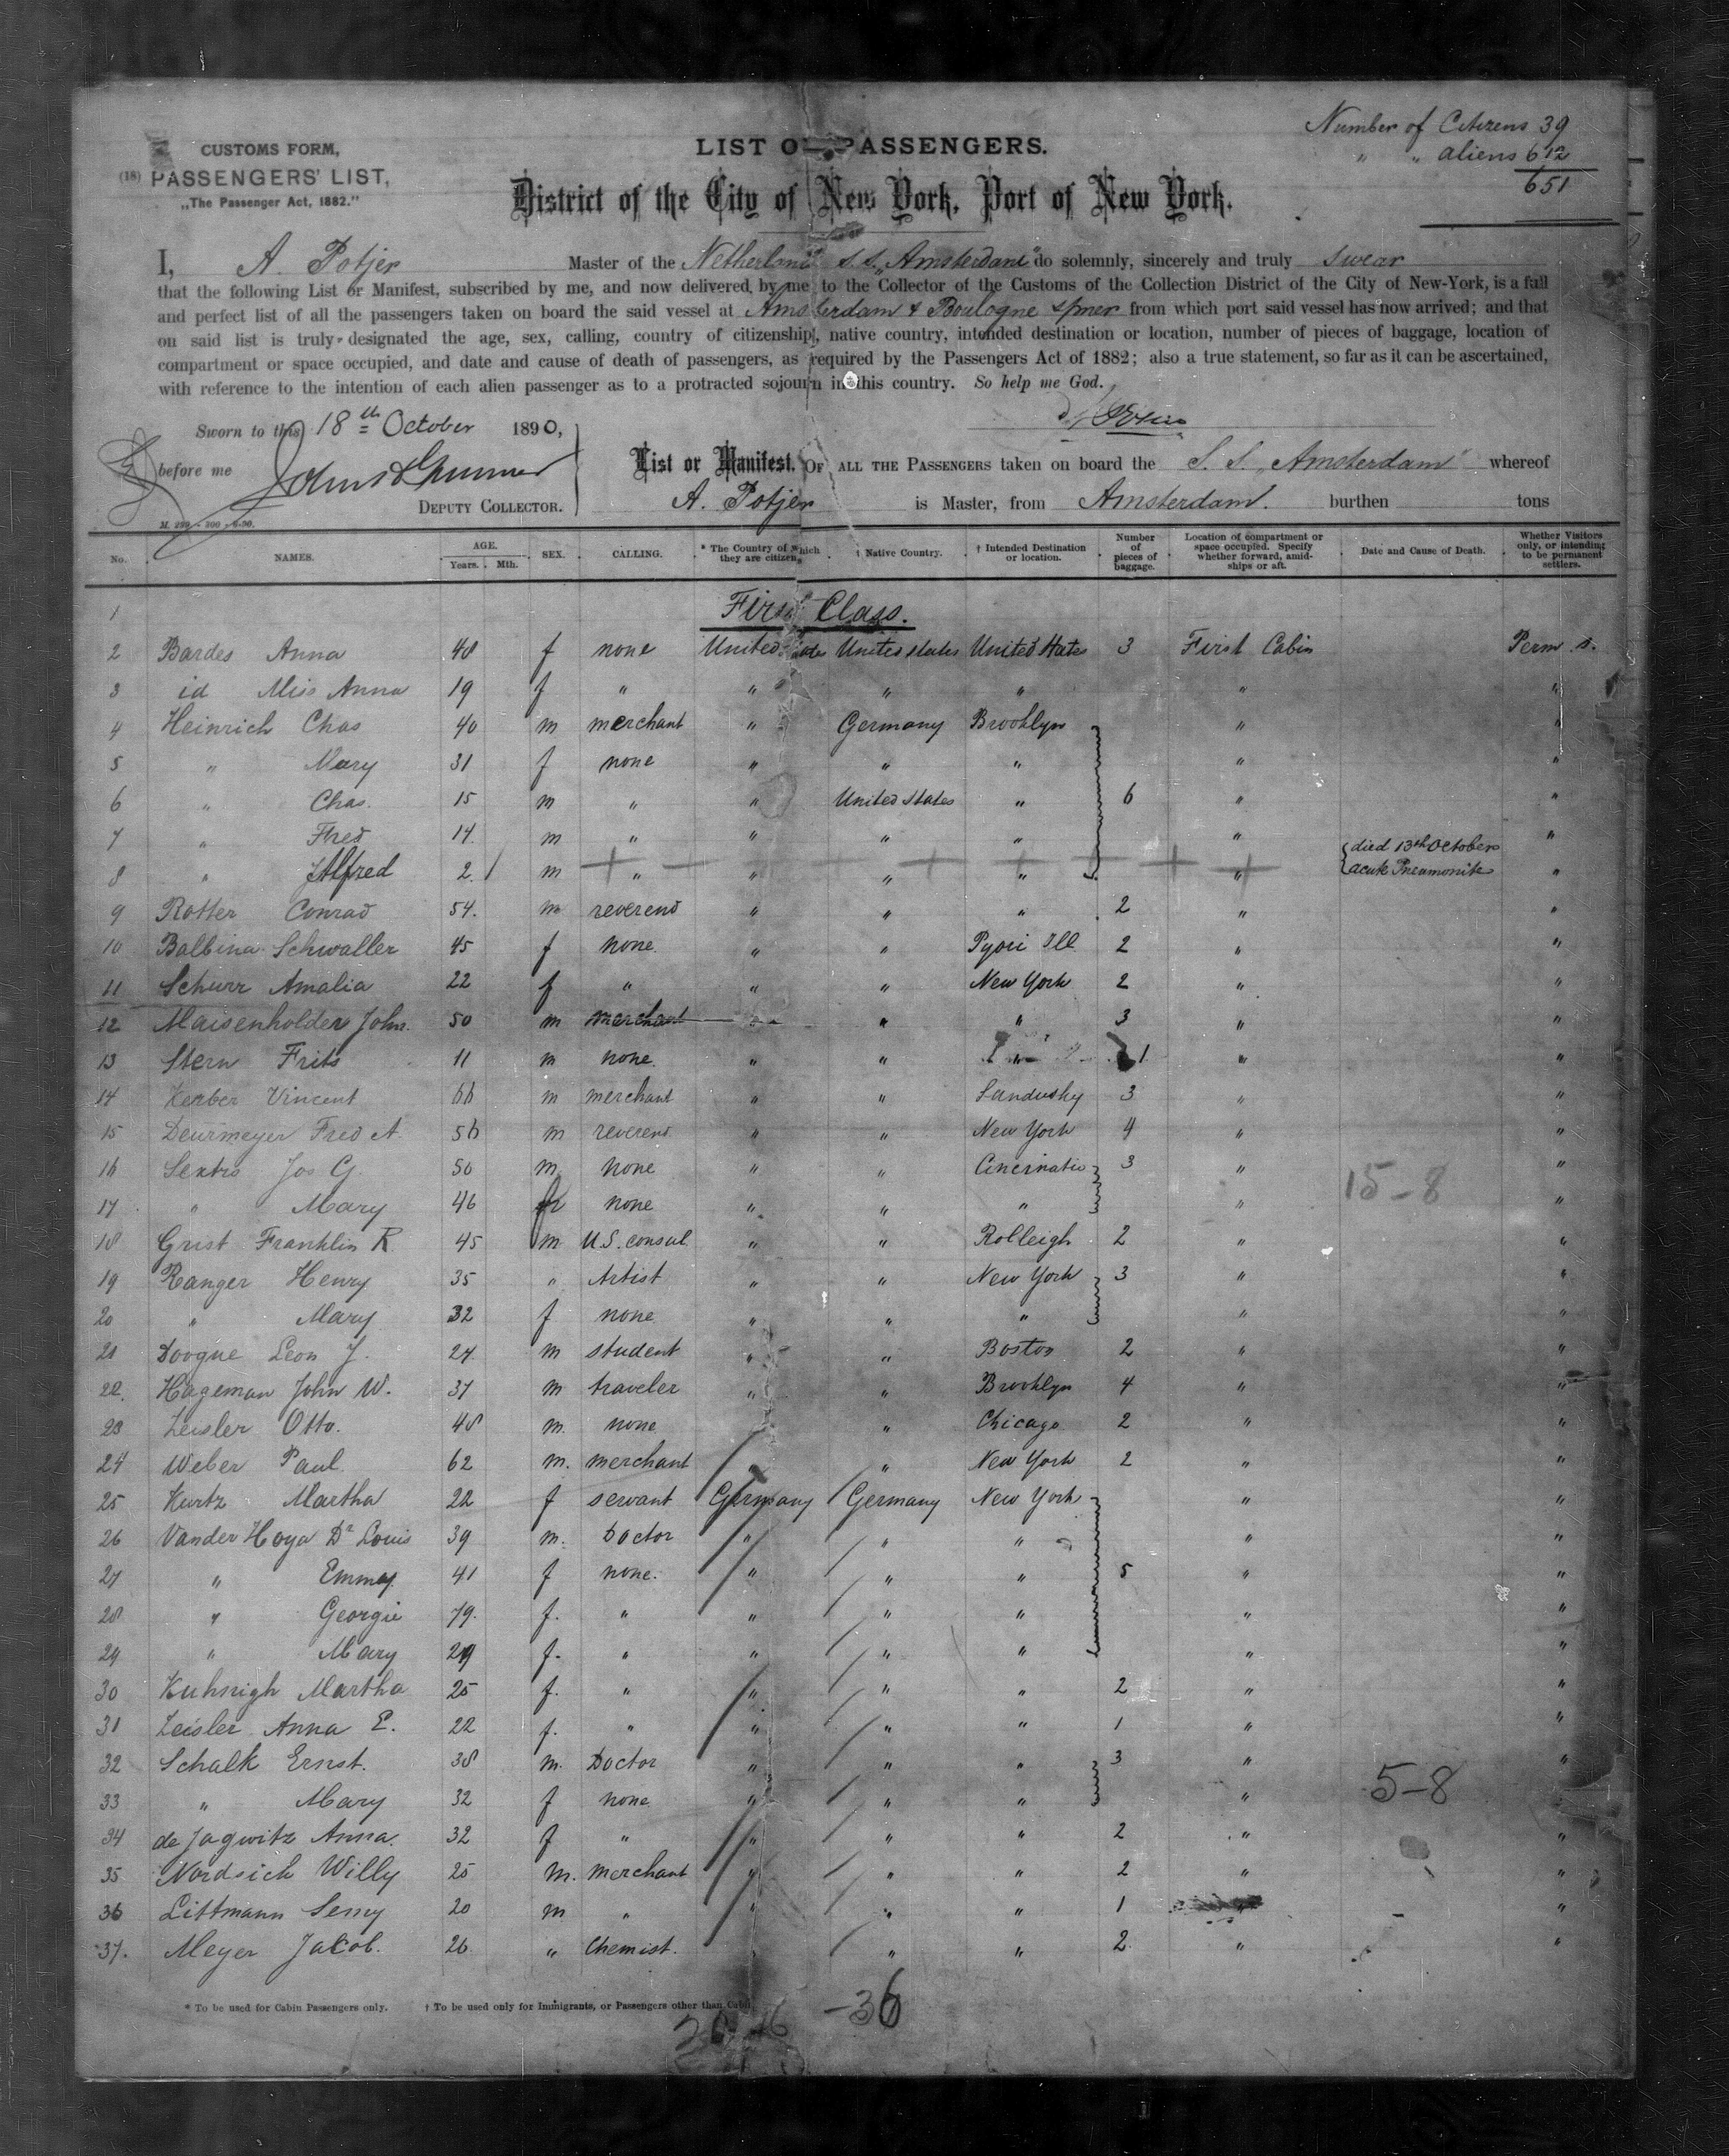 Number of Citizens 39
" " aliens 612
651
CUSTOMS FORM,
(18) PASSENGERS' LIST,
„The Passenger Act, 1882."
LIST OF PASSENGERS.
District of the City of New York, Port of New York.
I, A. Potjer Master of the Netherland S.S. „Amsterdam" do solemnly, sincerely and truly swear
that the following List or Manifest, subscribed by me, and now delivered by me to the Collector of the Customs of the Collection District of the City of New-York, is a full
and perfect list of all the passengers taken on board the said vessel at Amsterdam & Boulogne s/mer from which port said vessel has now arrived; and that
on said list is truly designated the age, sex, calling, country of citizenship, native country, intended destination or location, number of pieces of baggage, location of
compartment or space occupied, and date and cause of death of passengers, as required by the Passengers Act of 1882; also a true statement, so far as it can be ascertained,
with reference to the intention of each alien passenger as to a protracted sojourn in this country. So help me God.
Sworn to this 18th October 1890,
before me
DEPUTY COLLECTOR.
List or Manifest, OF ALL THE PASSENGERS taken on board the S.S. „Amsterdam" whereof
A. Potjer is Master, from Amsterdam. burthen tons
No. NAMES. AGE. Years. Mth. SEX. CALLING. * The Country of which they are citizens † Native Country. † Intended Destination or location. Number of pieces of baggage. Location of compartment or space occupied. Specify whether forward, amidships or aft. Date and Cause of Death. Whether Visitors only, or intending to be permanent settlers.
1 First Class.
2 Bardes Anna 48 f none United States United States United States 3 First Cabin Perm. s.
3 id Miss Anna 19 f " " " " " "
4 Heinrich Chas 40 m merchant " Germany Brooklyn " "
5 " Mary 31 f none " " " " "
6 " Chas. 15 m " " United States " 6 " "
7 " Fred 14 m " " " " " "
8 " Alfred 2 m " " " " " died 13th October acute Pneumonite "
9 Rotter Conrad 54. m reverend " " " 2 " "
10 Balbina Schwaller 45 f none. " " Pyori Ill 2 " "
11 Schurr Amalia 22 f " " " New York 2 " "
12 Maisenholder John. 50 m merchant " " " 3 " "
13 Stern Frits 11 m none. " " 1 " "
14 Kerber Vincent 66 m merchant " " Sandusky 3 " "
15 Deurmeyer Fred A. 56 m reverend " " New York 4 " "
16 Sextro Jos G. 50 m. none " " Cincinatio 3 " "
15-8
17 " Mary 46 f none " " " " "
18 Grist Franklin R. 45 m U.S. consul. " " Rolleigh 2 " "
19 Ranger Henry 35 " Artist " " New York 3 " "
20 " Mary 32 f none. " " " " "
21 Doogue Leon J. 24 m student " " Boston 2 " "
22. Hageman John W. 37 m traveler " " Brooklyn 4 " "
23 Zeisler Otto. 48 m. none " Chicago 2 " "
24 Weber Paul 62 m. merchant " " New York 2 " "
25 Kurtz Martha 22 f servant Germany Germany New York " "
26 Vander Hoya Dr Louis 39 m. Doctor " " " " "
27 " Emmy 41 f none. " " " 5 " "
28 " Georgie 19. f. " " " " " "
29 " Mary 29 f. " " " " " "
30 Kuhnigh Martha 25 f. " " " " 2 " "
31 Zeisler Anna E. 22 f. " " " " 1 " "
32 Schalk Ernst. 38 m. Doctor " " " 3 " "
5-8
33 " Mary 32 f none " " " " "
34 de Jagwitz Anna. 32 f " " " " 2 " "
35 Nordsich Willy 25 m. merchant " " " 2 " "
36 Littmann Semy 20 m " " " " 1 "
37. Meyer Jakob. 26. " Chemist. " " 2 " "
* To be used for Cabin Passengers only. † To be used only for Immigrants, or Passengers other than Cabin
-36